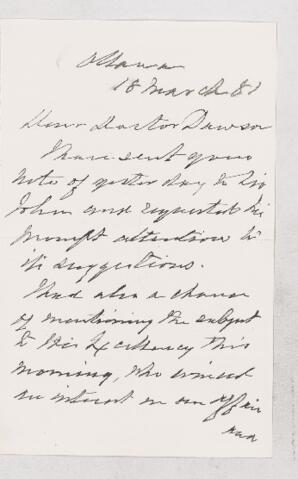 Ottawa
18 March 81
Dear Doctor Dawson
I have sent your
note of yesterday to Sir
John and requested his
prompt attention to
its suggestions.
I had also a chance
of mentioning the subject
to His Excellency this
morning, who
an interest in our affair
and